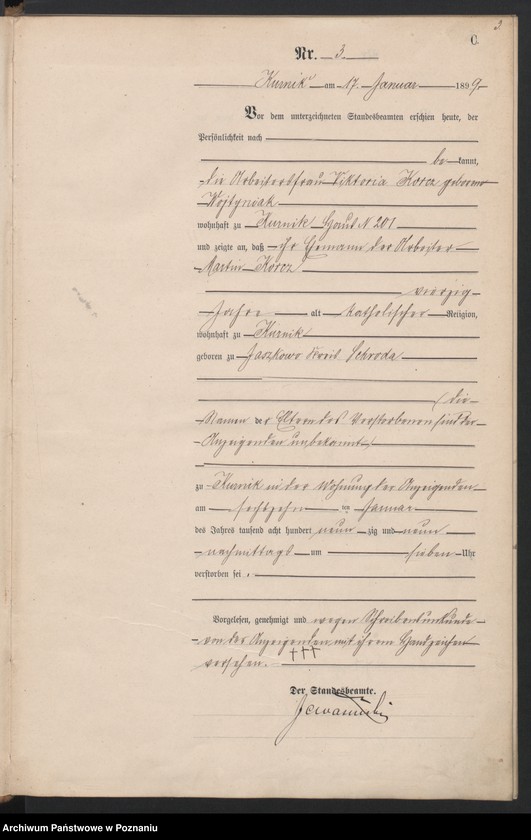 3
C.
Nr. 3
Kurnik am 17. Januar 1899
Vor dem unterzeichneten Standesbeamten erschien heute, der
Persönlichkeit nach
be kannt,
die Arbeiterfrau Viktoria Korcz geborene
Wojtyniak
wohnhaft zu Kurnik Haus N 201
und zeigte an, daß ihr Ehemann der Arbeiter
Martin Korcz
vierzig
Jahre alt katholischer Religion,
wohnhaft zu Kurnik
geboren zu Jaszkowo Kreis Schroda
(die
Namen der Eltern des Verstorbenen sind der
Anzeigenden unbekannt)
zu Kurnik in der Wohnung der Anzeigenden
am sechszehn ten Januar
des Jahres tausend acht hundert neun zig und neun
nachmittags um sieben Uhr
verstorben sei.
Vorgelesen, genehmigt und wegen Schreibensunkunde
von der Anzeigenden mit ihrem Handzeichen
versehen. †††
Der Standesbeamte.
Archiwum Państwowe w Poznaniu